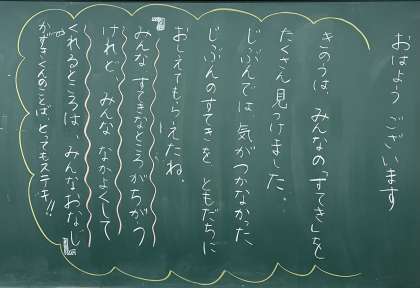 おはよう ございます
きのうは、みんなの「すてき」を
たくさん 見つけました。
じぶんでは、気がつかなかった
じぶんのすてきを ともだちに
おしえてもらえたね。
「みんな すてきなところが ちがう
けれど、みんな なかよくして
くれるところは、みんなおなじ」
かずきくんのことば、とってもステキ!!